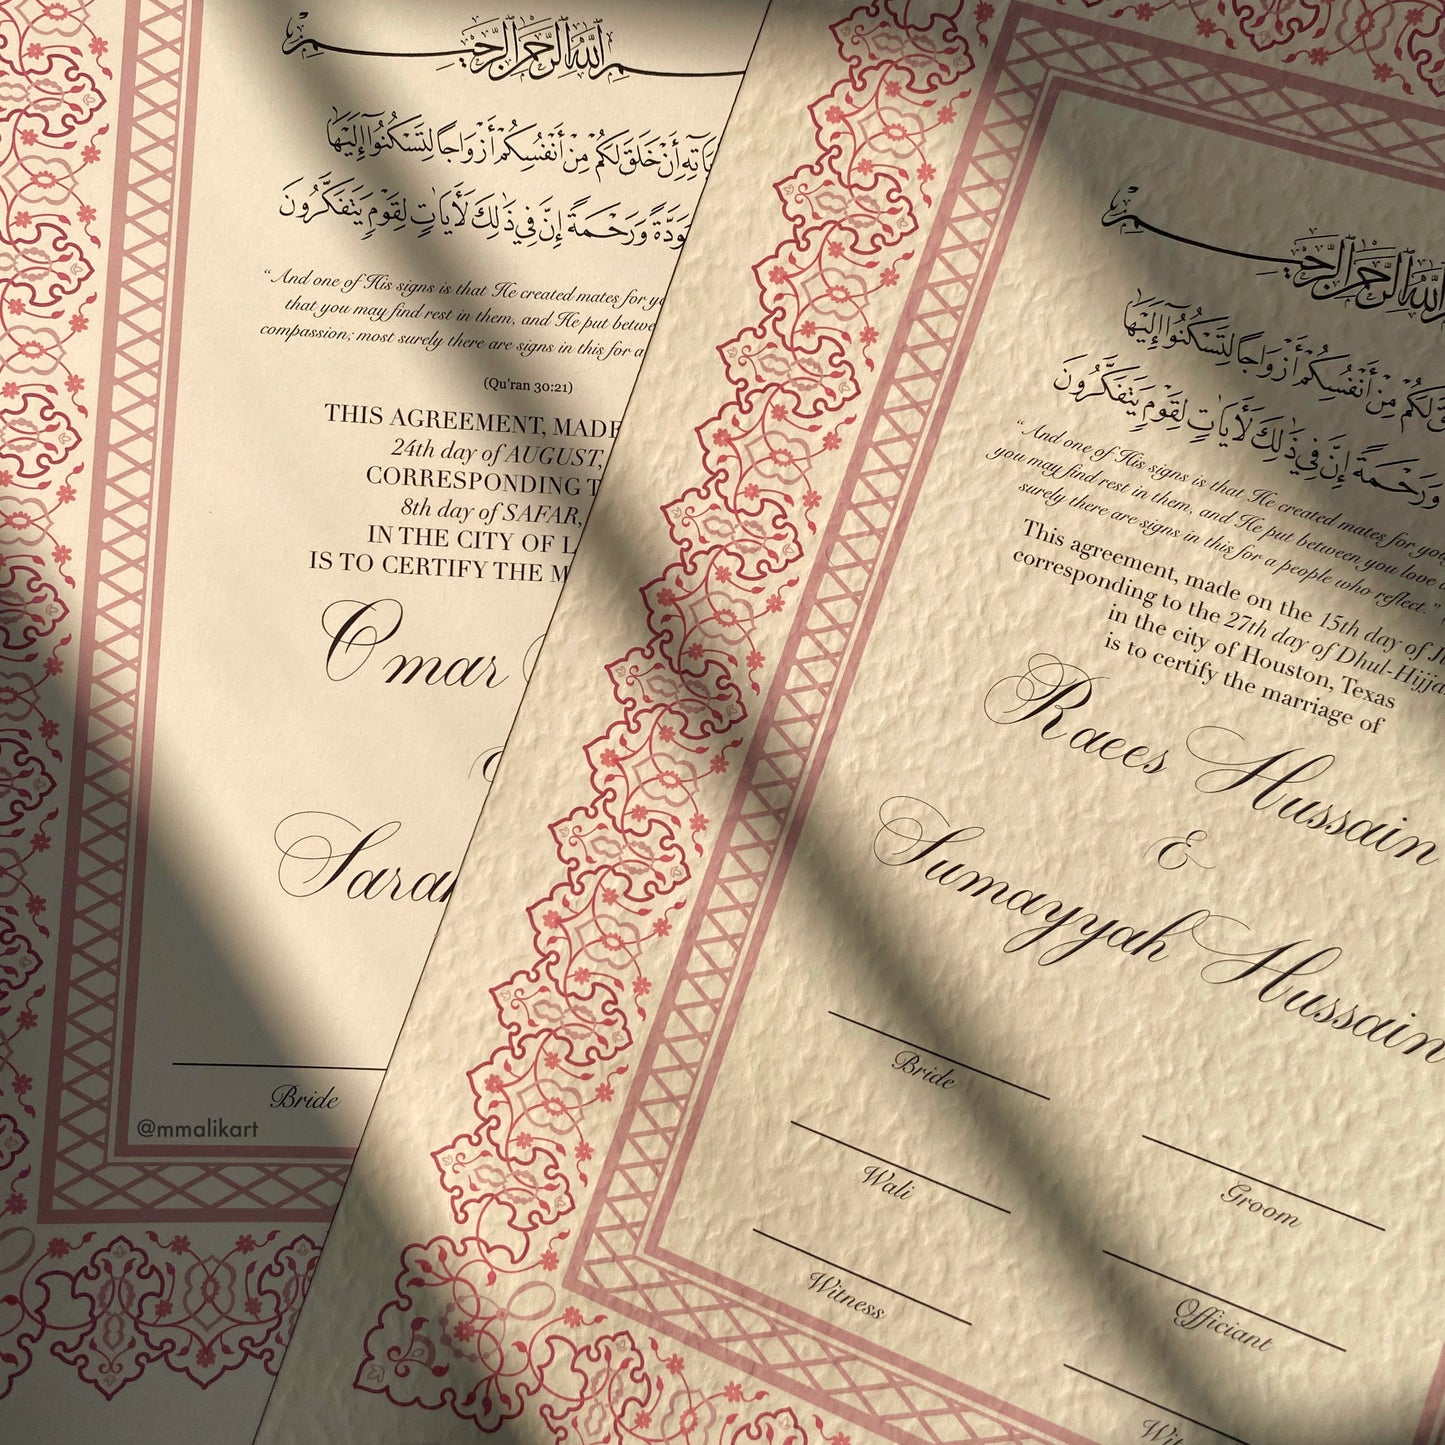 بِسْمِ اللَّهِ الرَّحْمَٰنِ الرَّحِيمِ
أَنْ خَلَقَ لَكُمْ مِنْ أَنْفُسِكُمْ أَزْوَاجًا لِتَسْكُنُوا إِلَيْهَا
وَرَحْمَةً إِنَّ فِي ذَٰلِكَ لَآيَاتٍ لِقَوْمٍ يَتَفَكَّرُونَ
“And one of His signs is that He created mates for
that you may find rest in them, and He put
compassion; most surely there are signs in this for a
(Qu'ran 30:21)
THIS AGREEMENT, MADE
24th day of AUGUST,
CORRESPONDING
8th day of SAFAR,
IN THE CITY OF
IS TO CERTIFY THE
Omar
Sarah
Bride
@mmalikart
بِسْمِ اللَّهِ الرَّحْمَٰنِ الرَّحِيمِ
لَكُمْ مِنْ أَنْفُسِكُمْ أَزْوَاجًا لِتَسْكُنُوا إِلَيْهَا
وَرَحْمَةً إِنَّ فِي ذَٰلِكَ لَآيَاتٍ لِقَوْمٍ يَتَفَكَّرُونَ
“And one of His signs is that He created mates for you
you may find rest in them, and He put between you love
surely there are signs in this for a people who reflect.”
This agreement, made on the 15th day of
corresponding to the 27th day of Dhul-Hijja
in the city of Houston, Texas
is to certify the marriage of
Raees Hussain
&
Sumayyah Hussain
Bride
Groom
Wali
Officiant
Witness